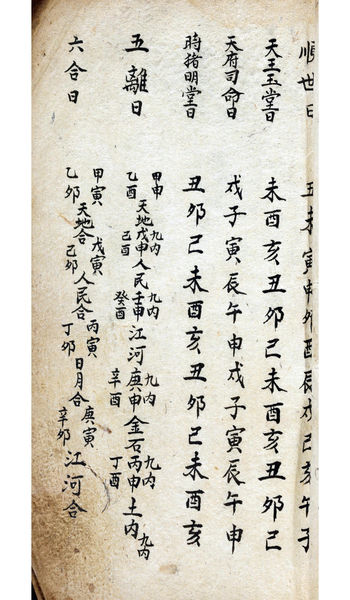 順世日 丑未寅申卯酉辰戌巳亥午子
天王玉堂日 未酉亥丑卯巳未酉亥丑卯巳
天府司命日 戌子寅辰午申戌子寅辰午申
時猪明堂日 丑卯巳未酉亥丑卯巳未酉亥
五離日 甲申乙酉天地九内戊申己酉人民九内壬申癸酉江河九内庚申辛酉金石九内丙申丁酉土内九内
六合日 甲寅乙卯天地合戊寅己卯人民合丙寅丁卯日月合庚寅辛卯江河合